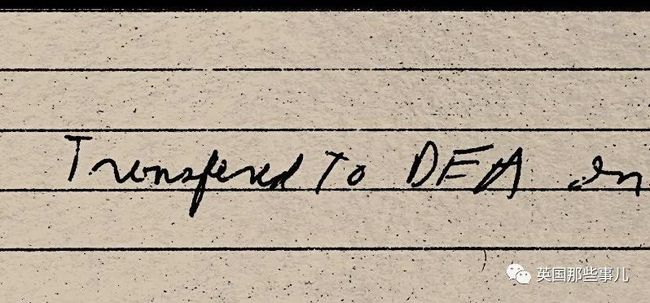 Transfered To DEA on
英国那些事儿